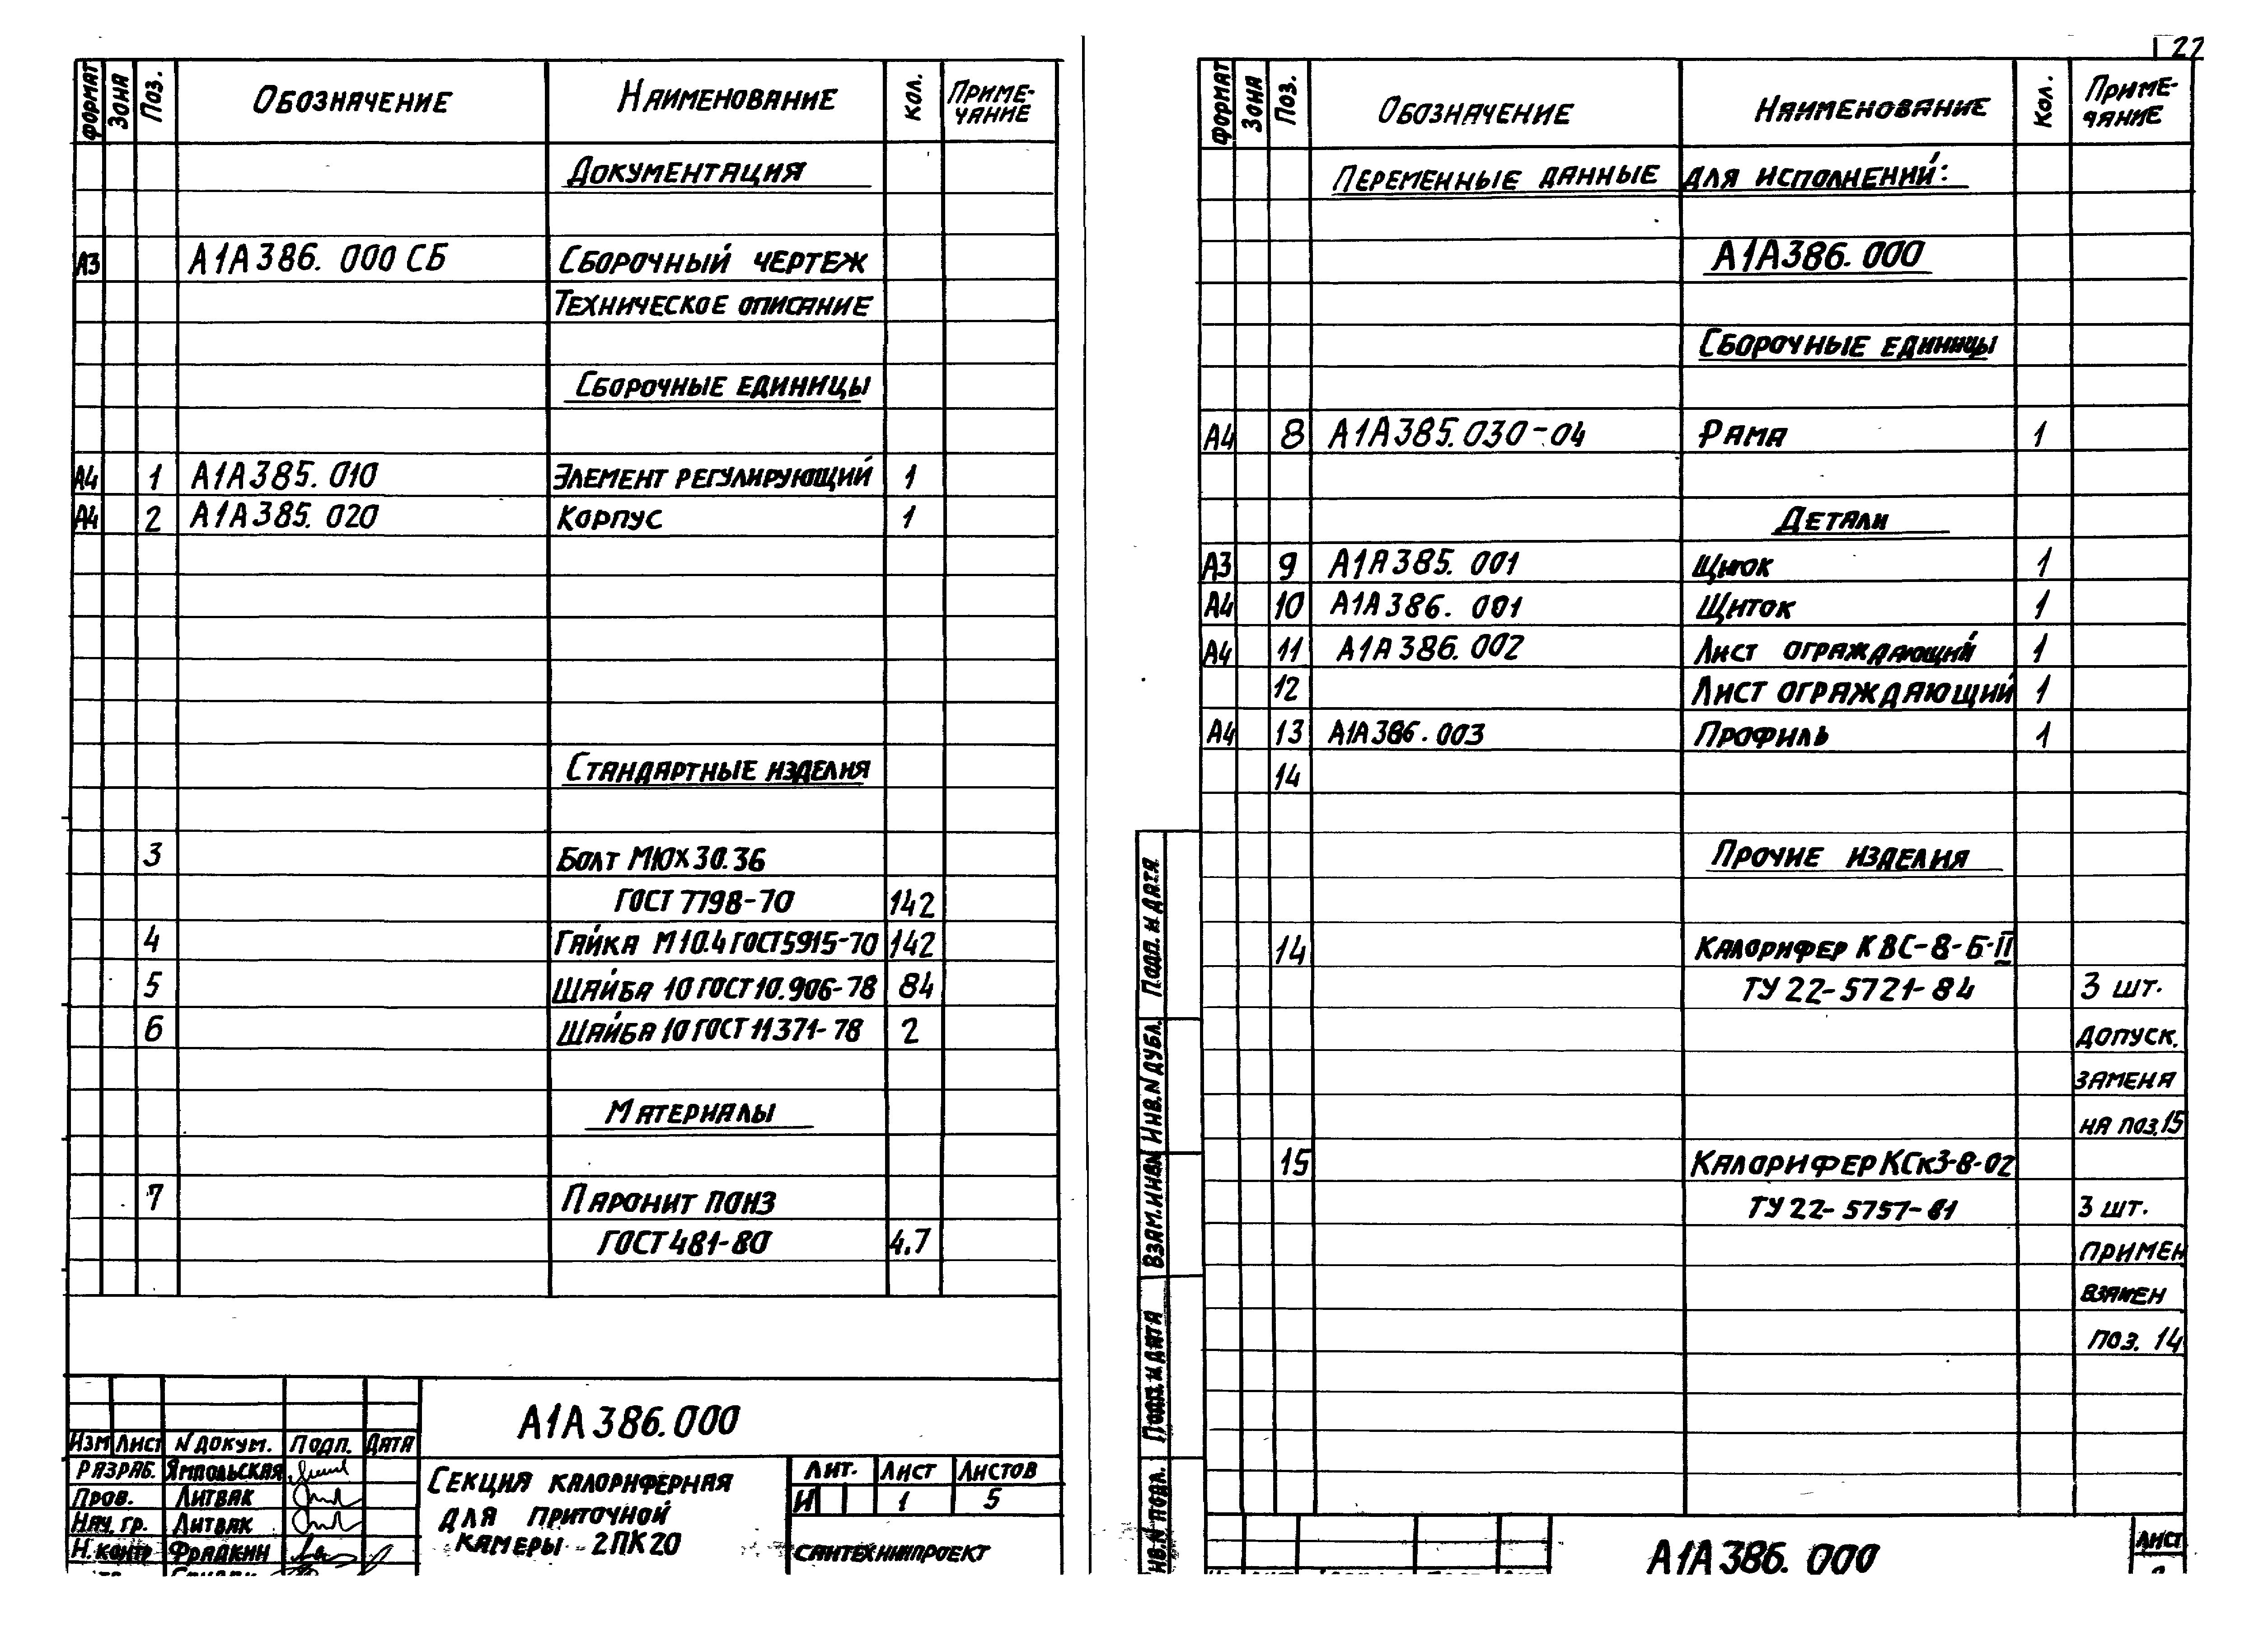 22
ФОРМАТ ЗОНА Поз. ОБОЗНАЧЕНИЕ НАИМЕНОВАНИЕ КОЛ. ПРИМЕ-
ЧАНИЕ
ДОКУМЕНТАЦИЯ
А3 А1А386.000 СБ СБОРОЧНЫЙ ЧЕРТЕЖ
ТЕХНИЧЕСКОЕ ОПИСАНИЕ
СБОРОЧНЫЕ ЕДИНИЦЫ
А4 1 А1А385.010 ЭЛЕМЕНТ РЕГУЛИРУЮЩИЙ 1
А4 2 А1А385.020 КОРПУС 1
СТАНДАРТНЫЕ ИЗДЕЛИЯ
3 БОЛТ М10х30.36
ГОСТ 7798-70 142
4 ГАЙКА М10.4 ГОСТ5915-70 142
5 ШАЙБА 10 ГОСТ10.906-78 84
6 ШАЙБА 10 ГОСТ 11371-78 2
МАТЕРИАЛЫ
7 ПАРОНИТ ПОН3
ГОСТ 481-80 4.7
А1А386.000
ИЗМ ЛИСТ N ДОКУМ. ПОДП. ДАТА
РАЗРАБ. ЯМПОЛЬСКАЯ
ПРОВ. ЛИТВАК
НАЧ. ГР. ЛИТВАК
Н. КОНТР ФРАДКИН
СЕКЦИЯ КАЛОРИФЕРНАЯ
ДЛЯ ПРИТОЧНОЙ
КАМЕРЫ 2ПК20
ЛИТ. ЛИСТ ЛИСТОВ
И 1 5
САНТЕХНИИПРОЕКТ
ФОРМАТ ЗОНА Поз. ОБОЗНАЧЕНИЕ НАИМЕНОВАНИЕ КОЛ. ПРИМЕ-
ЧАНИЕ
ПЕРЕМЕННЫЕ ДАННЫЕ ДЛЯ ИСПОЛНЕНИЙ:
А1А386.000
СБОРОЧНЫЕ ЕДИНИЦЫ
А4 8 А1А385.030-04 РАМА 1
ДЕТАЛИ
А3 9 А1А385.001 ЩИТОК 1
А4 10 А1А386.001 ЩИТОК 1
А4 11 А1А386.002 ЛИСТ ОГРАЖДАЮЩИЙ 1
12 ЛИСТ ОГРАЖДАЮЩИЙ 1
А4 13 А1А386.003 ПРОФИЛЬ 1
14
ПРОЧИЕ ИЗДЕЛИЯ
14 КАЛОРИФЕР КВС-8-Б-II
ТУ 22-5721-84 3 ШТ.
ДОПУСК.
ЗАМЕНА
НА ПОЗ.15
15 КАЛОРИФЕР КСк3-8-02
ТУ 22-5757-81 3 ШТ.
ПРИМЕН
ВЗАМЕН
ПОЗ. 14
ПОДП. И ДАТА
ИНВ.N ДУБЛ.
ВЗАМ.ИНВ.N
ПОДП. И ДАТА
ИНВ.N ПОДЛ.
А1А386.000
ЛИСТ